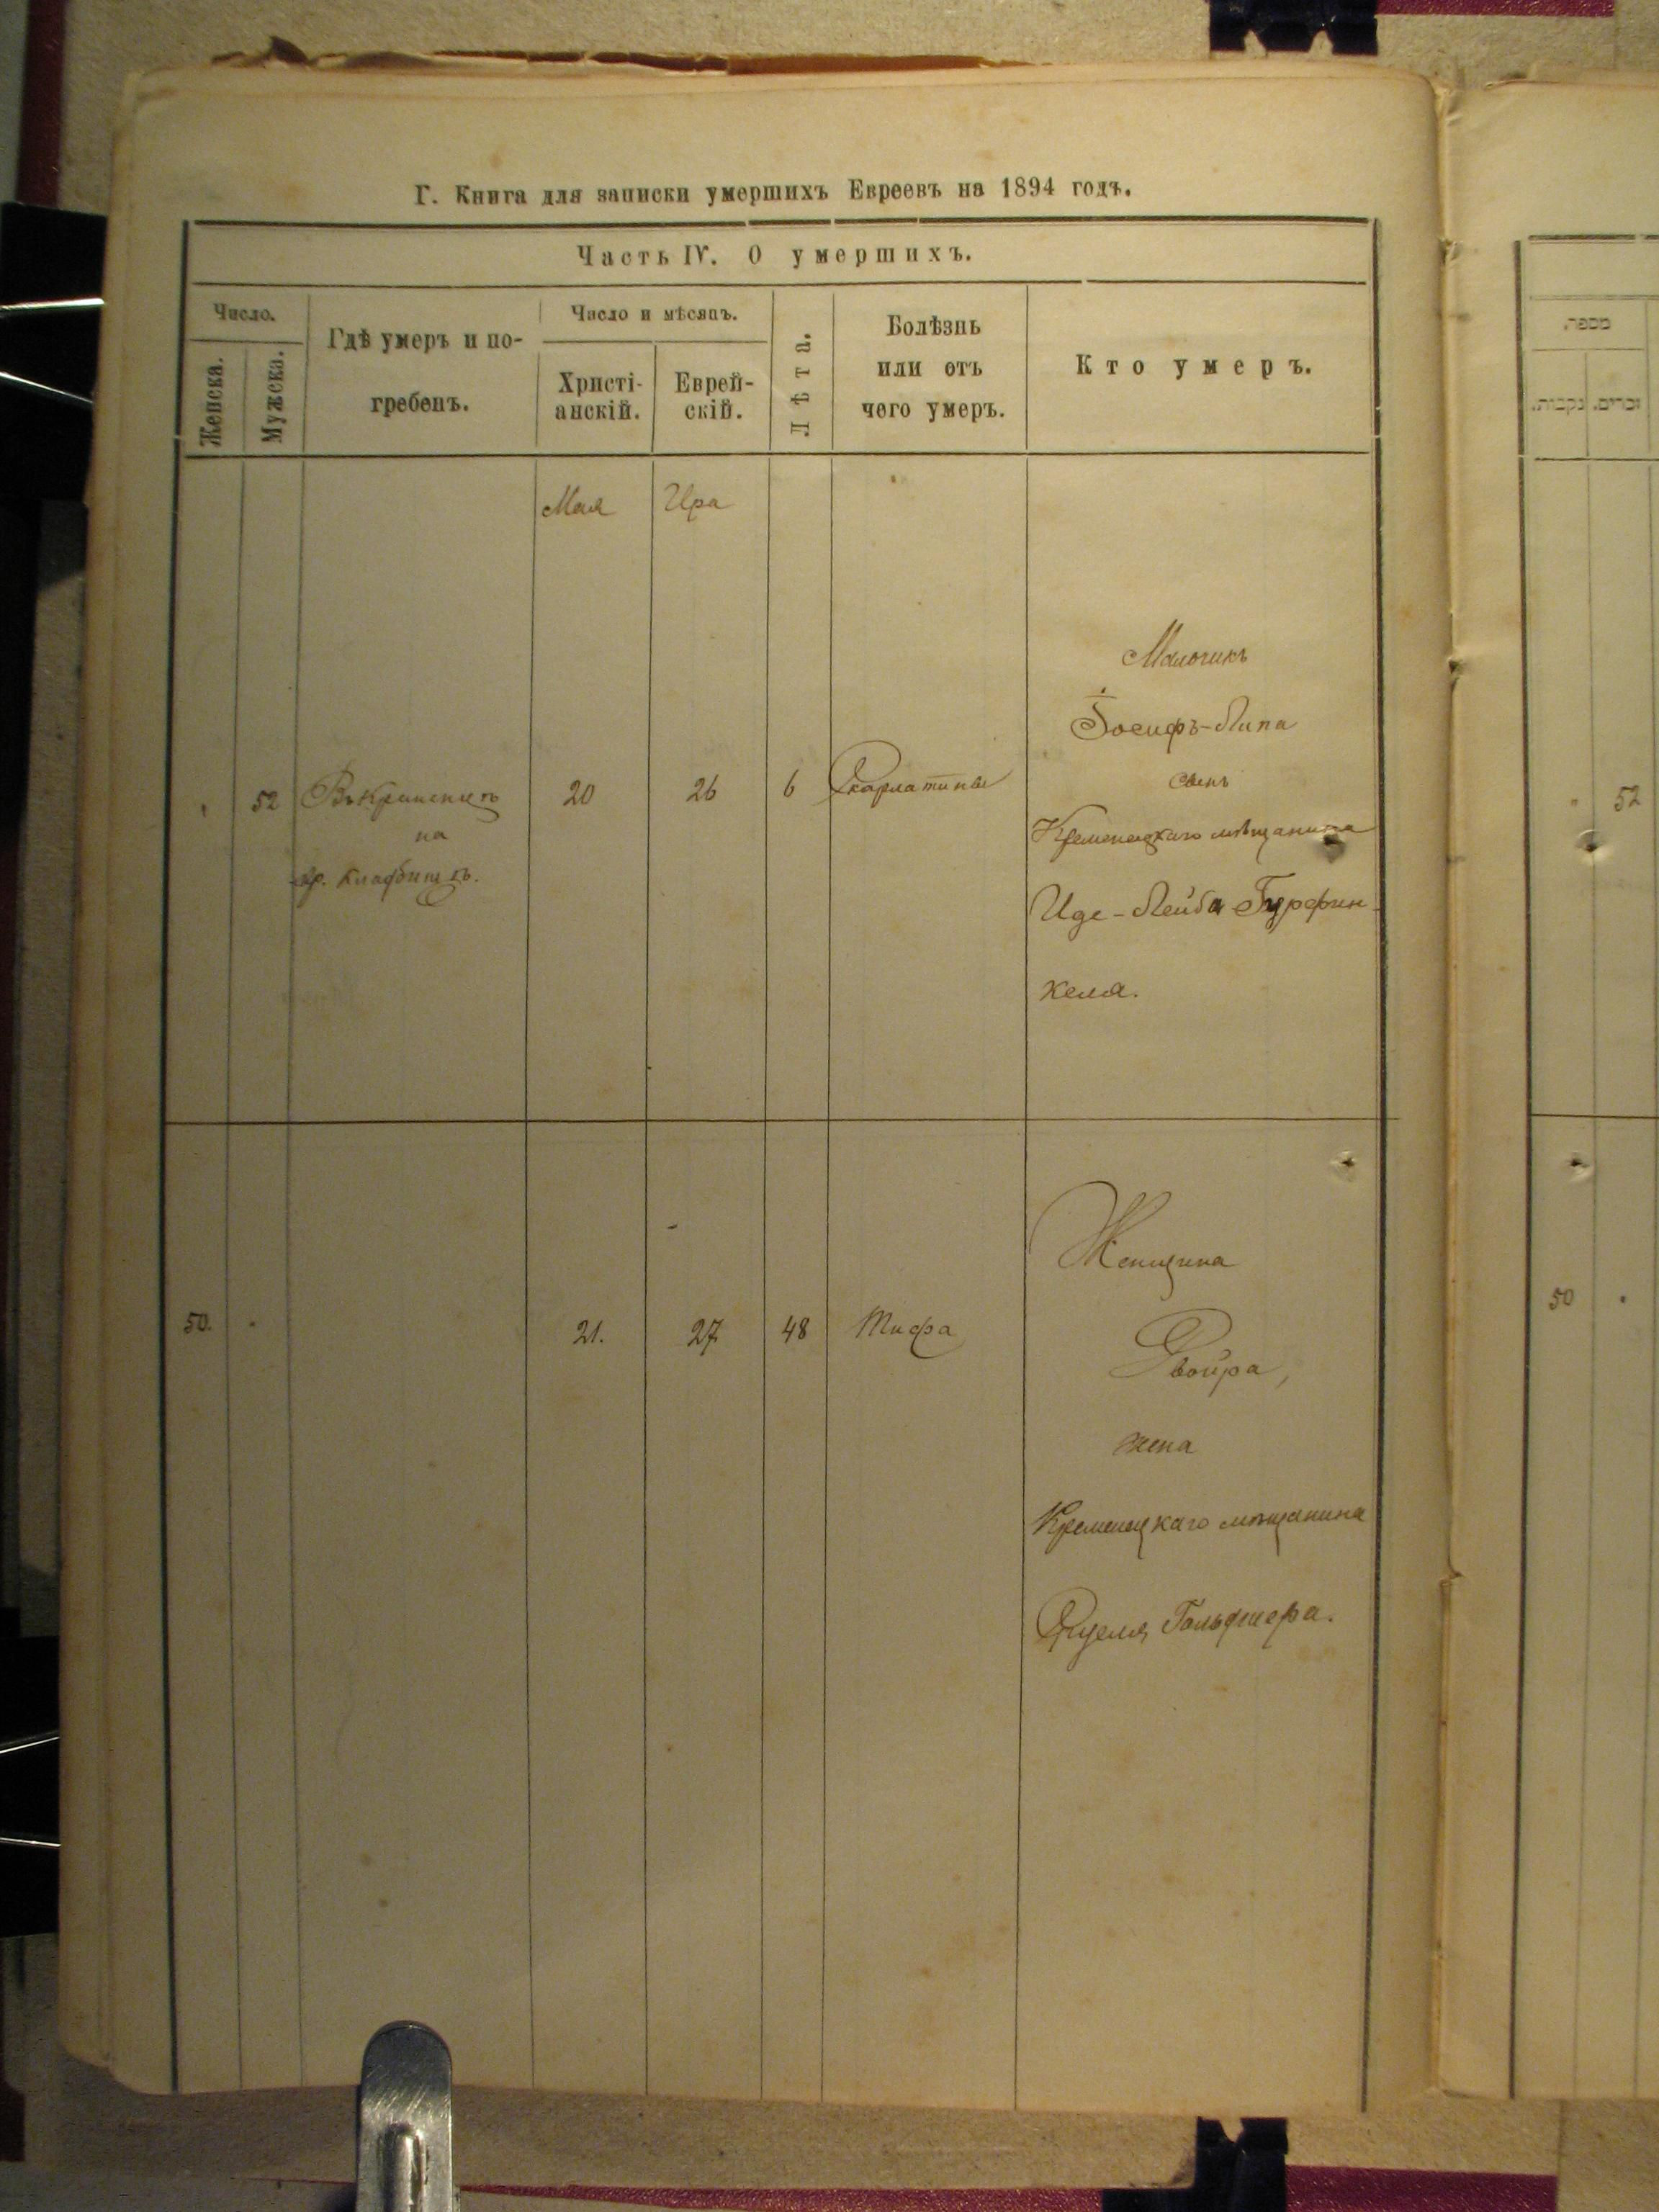 Г. Книга для записки умершихъ Евреевъ на 1894 годъ.
Часть IV. О умершихъ.
Число.
Женска.
Мужска.
Гдѣ умеръ и по-
гребенъ.
Число и мѣсяцъ.
Христі-
анскій.
Еврей-
скій.
Лѣта.
Болѣзнь
или отъ
чего умеръ.
Кто умеръ.
Мая
Ира
52
на
20
26
6
Скарлатины
Мальчикъ
Іосифъ-Липа
сынъ
Кременецкаго мѣщанина
Иде-Лейба Гурфин-
келя.
50.
21.
27
48
Тифа
Женщина
Двойра,
жена
Кременецкаго мѣщанина
Гольдшера.
מספר.
נקבות.
זכרים.
52
50